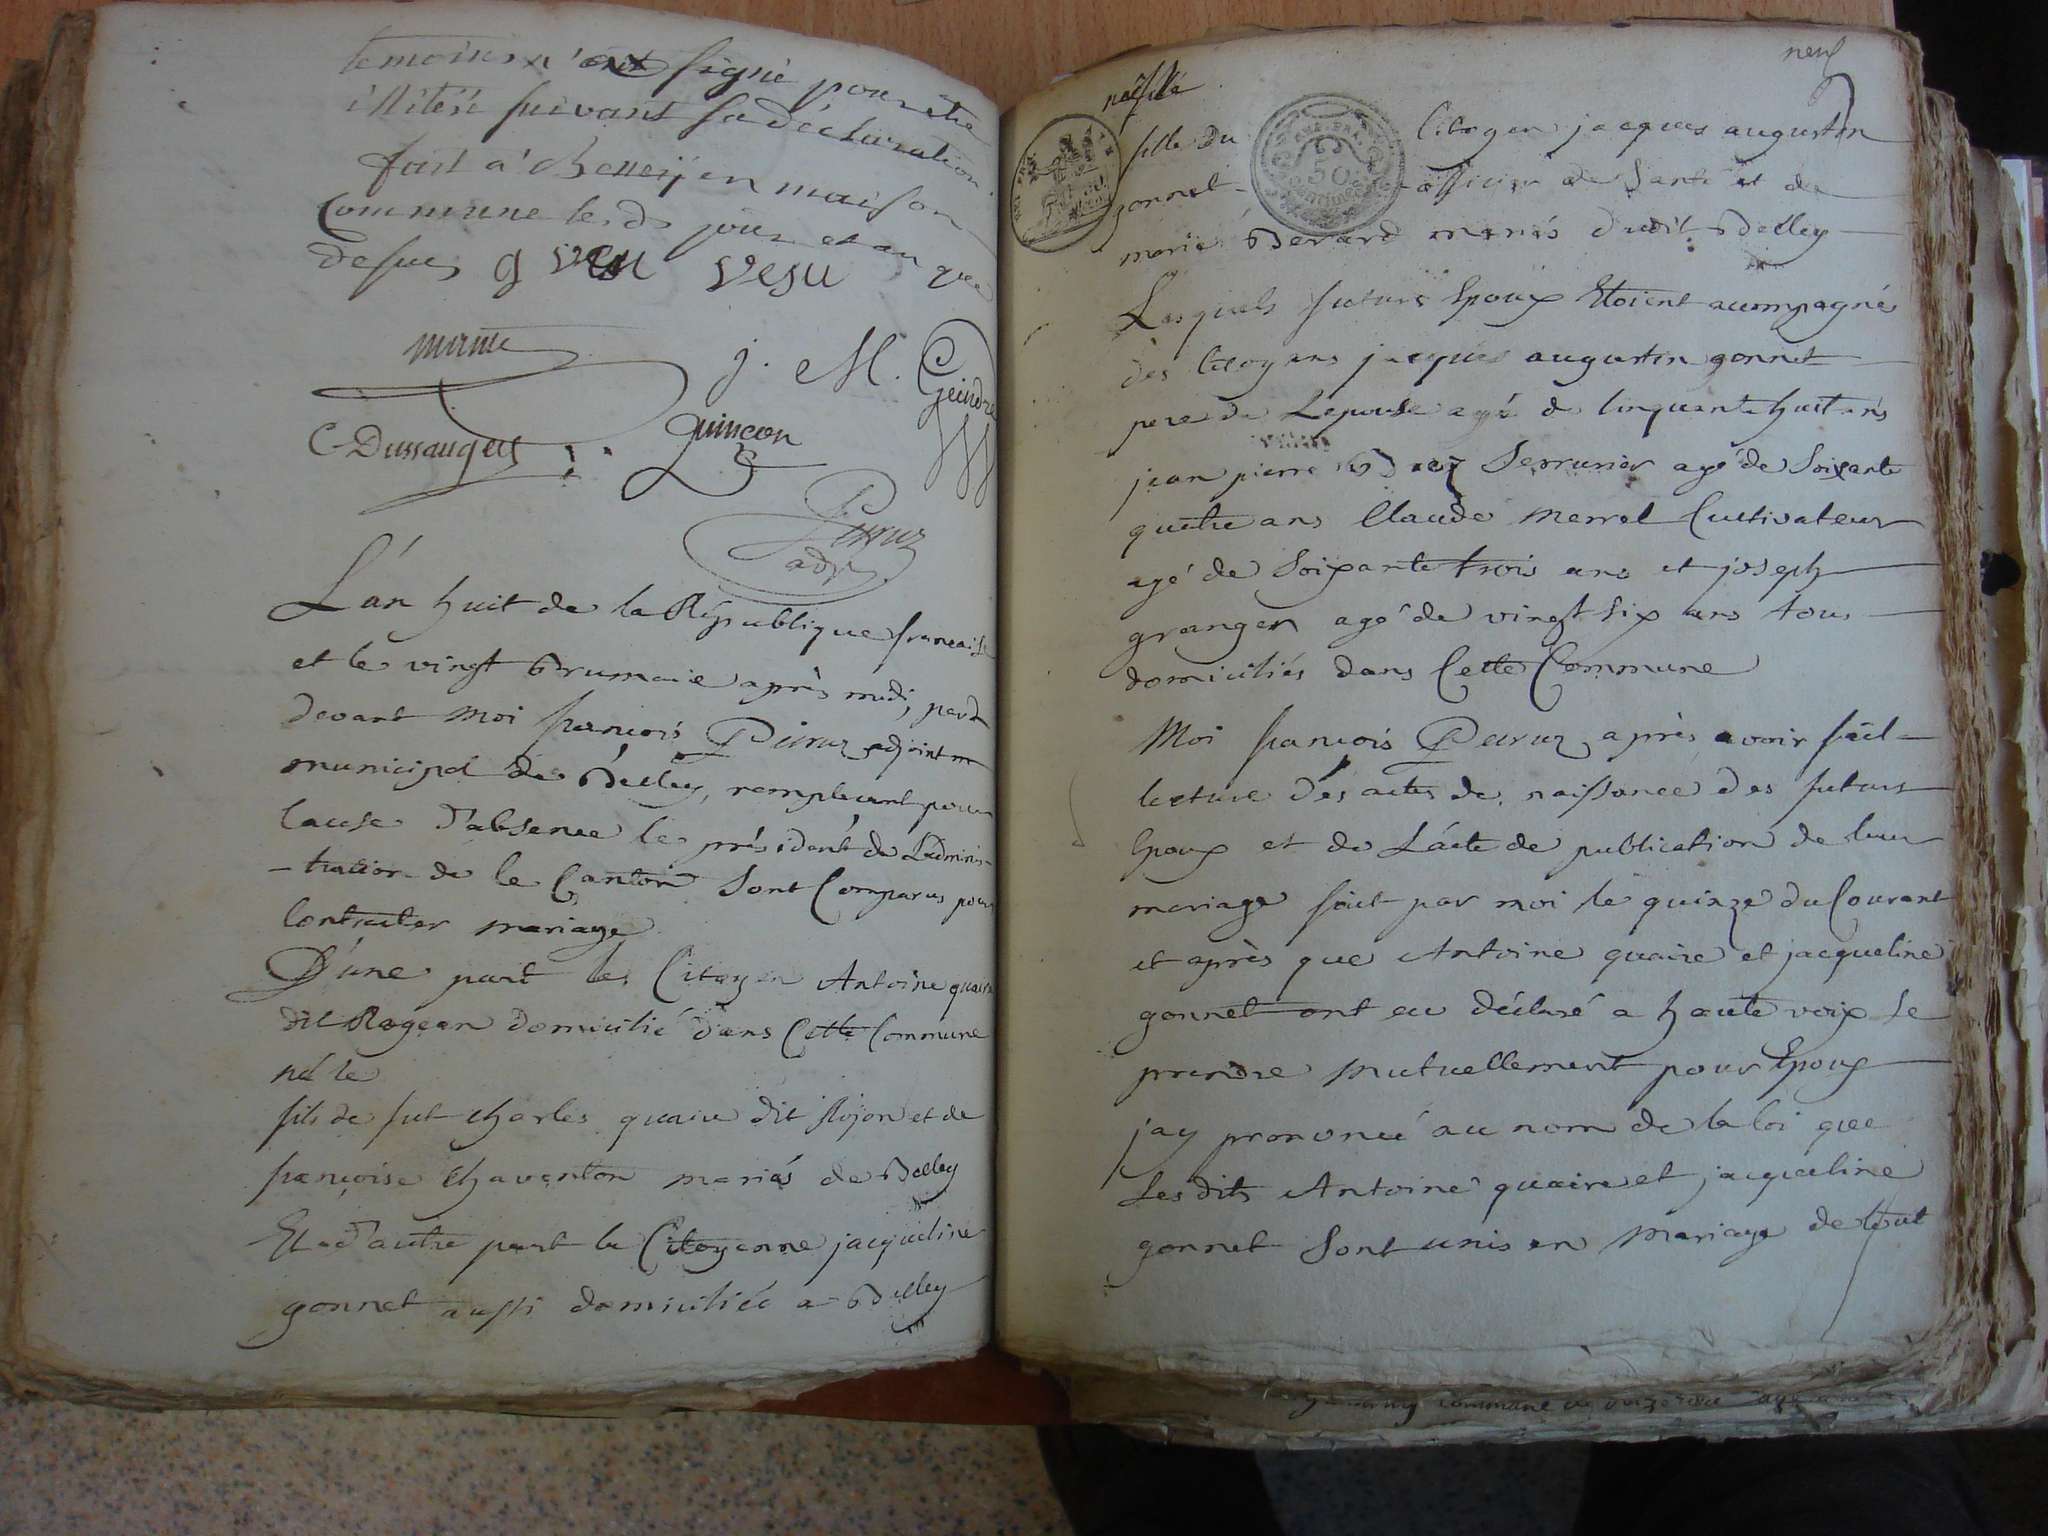 temoins n'ont signé pour etre
illiteré suivant sa déclaration
fait a cheneÿ en maison
Commune lesd. jour et an que
desus g vesu vesu
J. M. Geindre
C Dussauget Guinçon
Peruz
adj
L'an huit de la République francaise
et le vingt Brumaire après midi, pard
devant Moi françois Peruz adjoint m
municipal de Belley, remplacant pour
Cause d'absence le président de L'adminis-
-tration de ce Canton Sont Comparus pour
Contracter mariage
D'une part le Citoyen Antoine quaire
dit Rogean domicilié dans Cette Commune
né le
fils de fut charles quaire dit Rojon et de
françoise Chaventon mariés de Belley
Et d'autre part la Citoyenne jacqueline
gonnet aussi domiciliée a Belley
neuf
née le
fille du Citoyen jacques augustin
gonnet officier de Santé et de
marie Berard mariés dudit Belley
Lesquels futurs Epoux Etoient acompagnés
des Citoyens jacques augustin gonnet
pere de L'epouse agé de Cinquante huit ans
jean pierre Serrurier agé de Soixante
quatre ans Claude Merrel Cultivateur
agé de Soixante trois ans et joseph
granger agé de vingt six ans tous
domiciliés dans Cette Commune
Moi françois Peruz après avoir fait
lecture des actes de naissance des futurs
Epoux et de L'acte de publication de leur
mariage fait par moi le quinze du Courant
et après que Antoine quaire et jacqueline
gonnet ont eu déclaré a haute voix se
prendre Mutuellement pour Epoux
jay prononcé au nom de la loi que
Les dits Antoine quaire et jacqueline
gonnet Sont unis en Mariage de tout